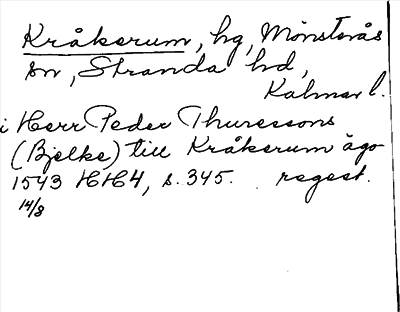 Kråkerum, hg, Mönsterås
sn, Stranda hd,
Kalmar l.
i Herr Peder Thuressons
(Bjelke) till Kråkerum ägo
1543 HH4, s. 345. regest.
14/8